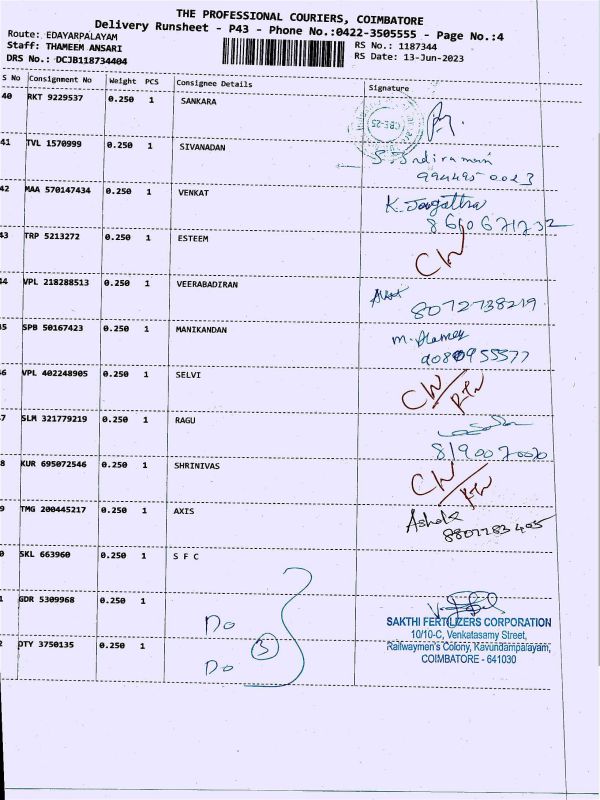 THE PROFESSIONAL COURIERS, COIMBATORE
Delivery Runsheet - P43 - Phone No.:0422-3505555 - Page No.:4
Route: EDAYARPALAYAM
Staff: THAMEEM ANSARI
DRS No.: DCJB118734404
RS No.: 1187344
RS Date: 13-Jun-2023
S No Consignment No Weight PCS Consignee Details Signature
40 RKT 9229537 0.250 1 SANKARA
CBE-25
41 TVL 1570999 0.250 1 SIVANADAN
42 MAA 570147434 0.250 1 VENKAT
8660671732
43 TRP 5213272 0.250 1 ESTEEM
44 VPL 218288513 0.250 1 VEERABADIRAN
8072738219
45 SPB 50167423 0.250 1 MANIKANDAN
9080955577
46 VPL 402248905 0.250 1 SELVI
7 SLM 321779219 0.250 1 RAGU
8190070020
8 KUR 695072546 0.250 1 SHRINIVAS
9 TMG 200445217 0.250 1 AXIS
Ashok
0 SKL 663960 0.250 1 S F C
1 GDR 5309968 0.250 1 Do
2 DTY 3750135 0.250 1 Do
3
SAKTHI FERTILIZERS CORPORATION
10/10-C, Venkatasamy Street,
Railwaymen's Colony, Kavundampalayam,
COIMBATORE - 641030